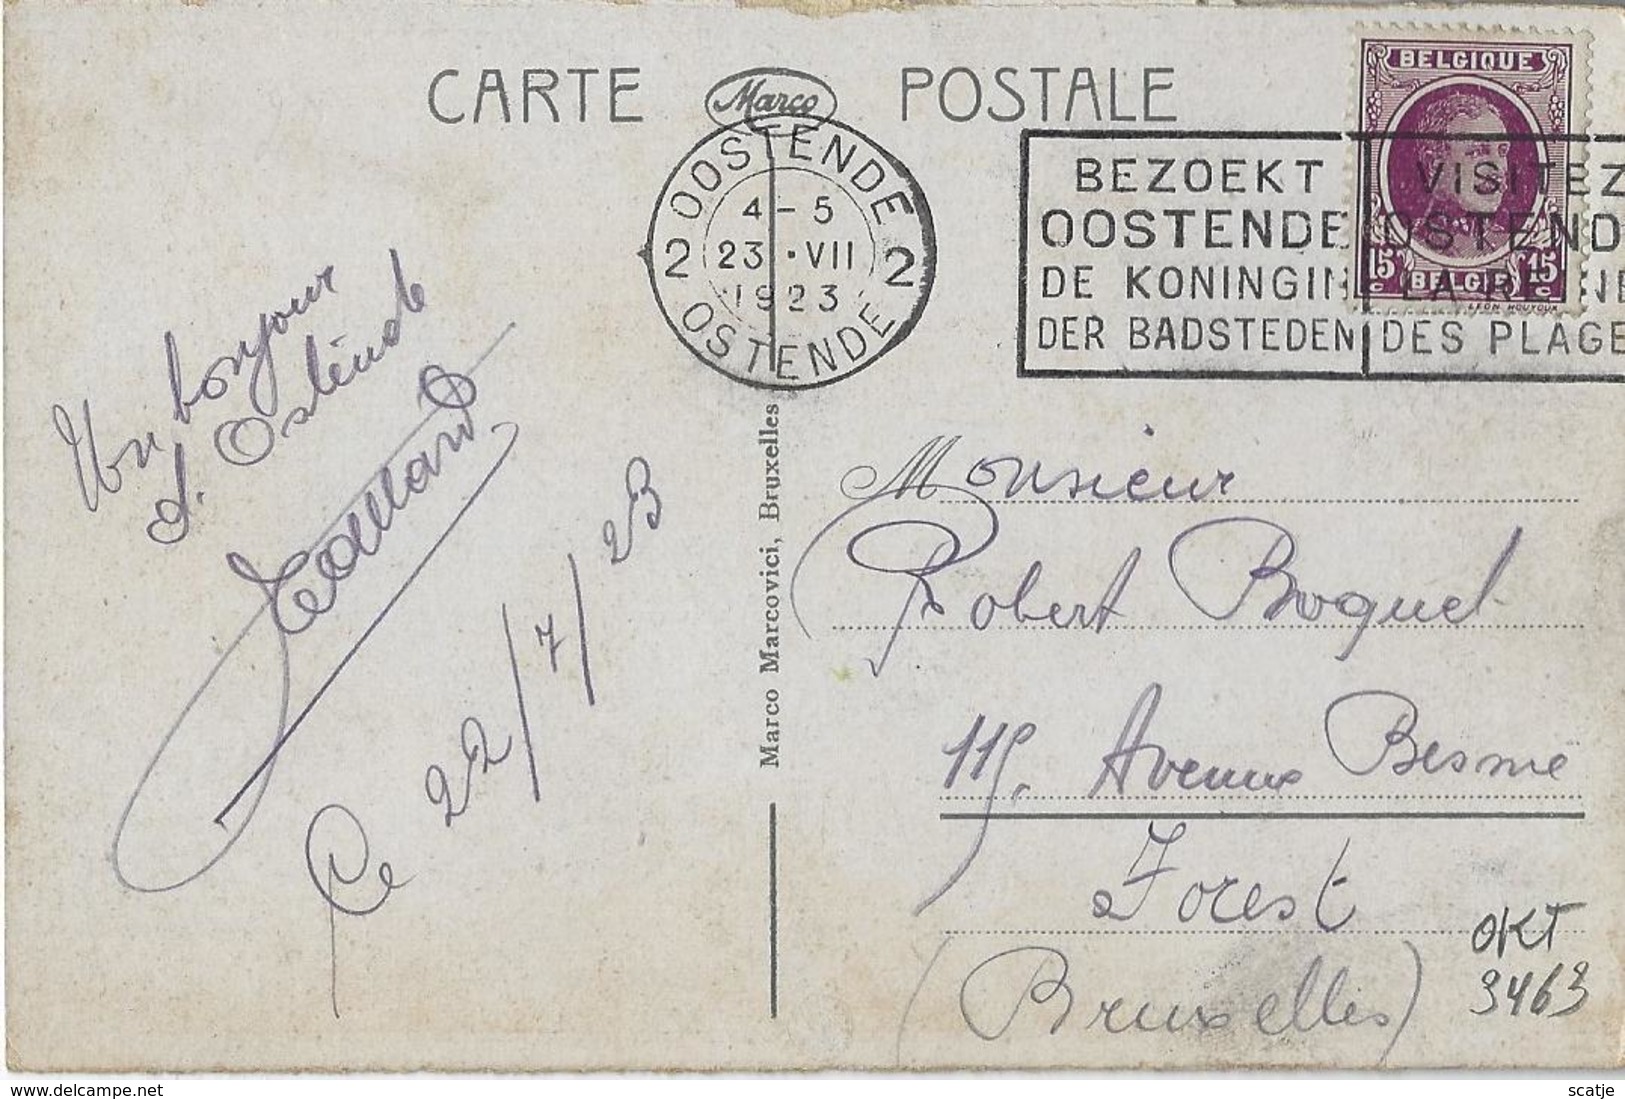 CARTE Marco POSTALE
BELGIQUE
15 15
BELGIE
LEON HOUYOUX
OOSTENDE
4-5
2 23·VII 2
1923
OSTENDE
BEZOEKT
OOSTENDE
DE KONINGIN
DER BADSTEDEN
VISITEZ
OSTENDE
LA REINE
DES PLAGE
Un bonjour
d'Ostende
Ce 22/7/23
Marco Marcovici, Bruxelles
Monsieur
Robert Boquet
115, Avenue Besme
Forest
(Bruxelles)
OKT
3463
www.delcampe.net
scatje